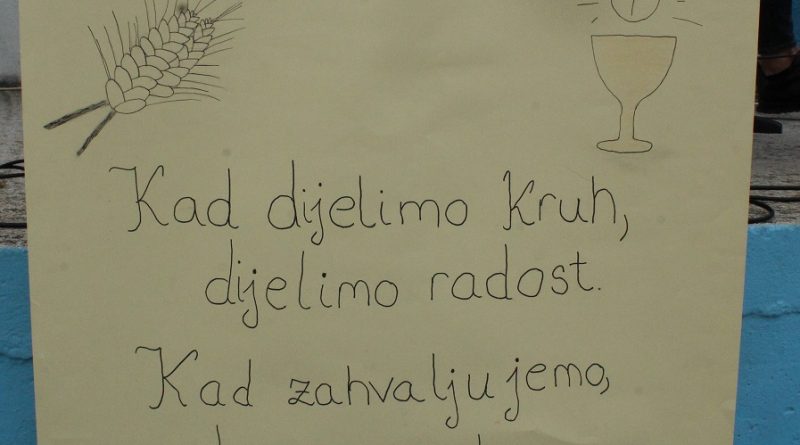 Kad dijelimo kruh,
dijelimo radost.
Kad zahvaljujemo,